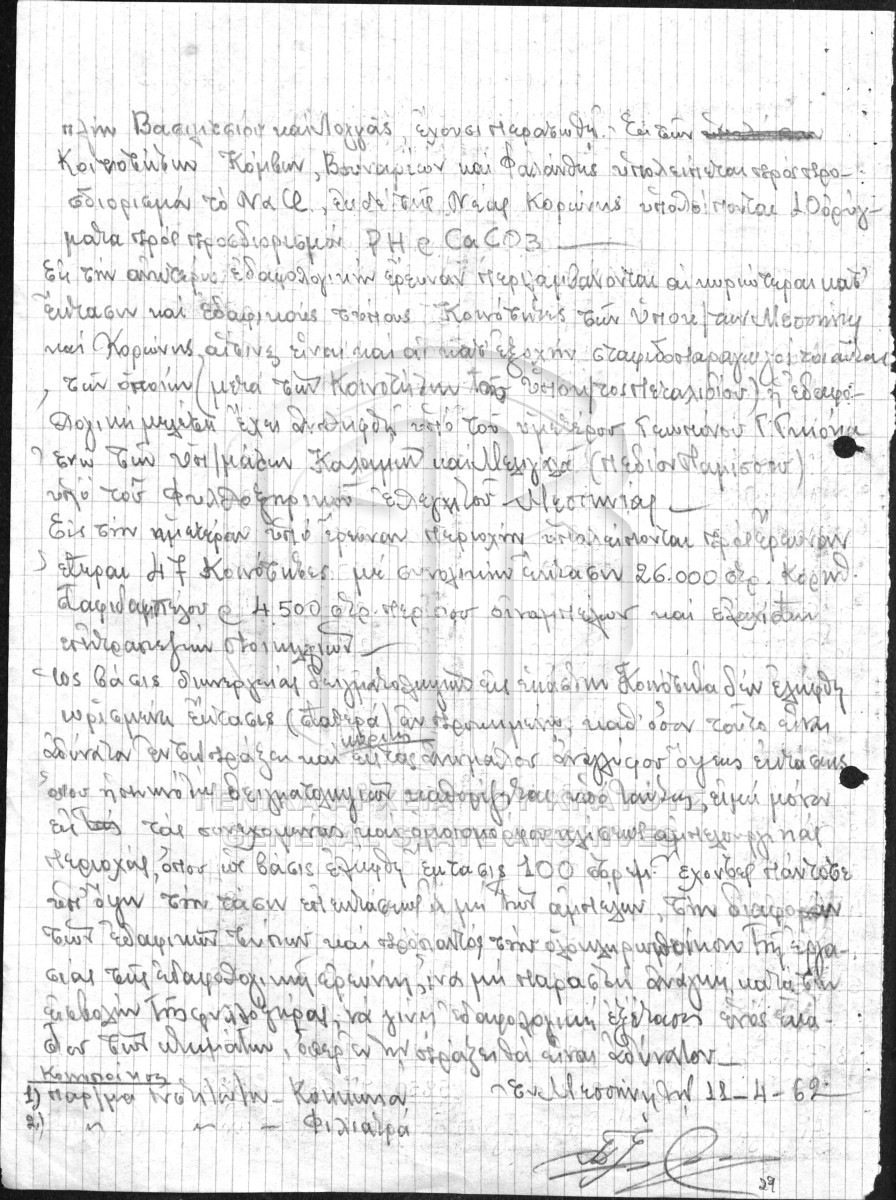 πλὴν Βασιλιτσίου καὶ Λογγᾶς, ἔχουσι περατωθῆ. Ἐκ τῶν
Κοινοτήτων Κόμβων, Βουναρίων καὶ Φαλάνθης ὑπολείπεται πρὸς προ-
σδιορισμὸν τὸ NaCl, ἐκ δὲ τῆς Νέας Κορώνης ὑπολείπονται 10 ὀρύγ-
ματα πρὸς προσδιορισμὸν PH @ CaCO3
Εἰς τὴν ἀνωτέρω ἐδαφολογικὴν ἔρευναν περιλαμβάνονται αἱ κυριώτεραι κατ'
ἔκτασιν καὶ ἐδαφικοὺς τύπους Κοινότητες τῶν Ὑποκ/των Μεσσήνης
καὶ Κορώνης, αἵτινες εἶναι καὶ αἱ κατ' ἐξοχὴν σταφιδοπαραγωγοὶ τοιαῦται
, τῶν ὁποίων (μετὰ τῶν Κοινοτήτων τοῦ Ὑποκ/τος Πεταλιδίου) ἡ ἐδαφο-
λογικὴ μελέτη ἔχει ἀναληφθῆ ὑπὸ τοῦ ἡμετέρου Γεωπόνου Γ.
, ἐνῶ τῶν Ὑπ/μάτων Καλαμῶν καὶ Μελιγαλᾶ (πεδίον Παμίσου)
ὑπὸ τοῦ Φυλλοξηρικοῦ Ἐλεγκτοῦ Μεσσηνίας
Εἰς τὴν ἡμετέραν ὑπὸ ἔρευναν περιοχὴν ὑπολείπονται πρὸς ἔρευναν
, ἕτεραι 47 Κοινότητες μὲ συνολικὴν ἔκτασιν 26.000 στρ. Κορινθ.
Σταφιδαμπέλου @ 4.500 στρ. περίπου οἰναμπέλων καὶ ἐλαχίστων
ἐπιτραπεζίων ποικιλιῶν
Ὡς βάσις διενεργείας δειγματοληψιῶν εἰς ἑκάστην Κοινότητα δὲν ἐλήφθη
ὡρισμένη ἔκτασις (σταθερὰ) ἐν προκειμένῳ, καθ' ὅσον τοῦτο εἶναι
ἀδύνατον ἐν τῇ πράξει καὶ κυρίως ἐκτὸς ἀναγλύφου ὄψεως ἐκτάσεις
ὅπου ἡ πυκνότης δειγματοληψιῶν καθορίζεται ὑπὸ ταύτης, εἰμὴ μόνον
εἰς τὰς συνεχομένας καὶ ὁμοιομόρφους ἀμπελουργικὰς
περιοχάς, ὅπου ὡς βάσις ἐλήφθη ἔκτασις 100 στρεμ. ἔχοντες πάντοτε
ὑπ' ὄψιν τὴν τάσιν ἐπεκτάσεως ἢ μὴ τῶν ἀμπέλων, τὴν διαφορὰν
τῶν ἐδαφικῶν τύπων καὶ πρὸ παντὸς τὴν ὁλοκληρωποίησιν τῆς ἐργα-
σίας τῆς ἐδαφολογικῆς ἐρεύνης, ἵνα μὴ παραστῇ ἀνάγκη, κατὰ τὴν
εἰσβολὴν τῆς φυλλοξήρας, νὰ γίνῃ ἐδαφολογικὴ ἐξέτασις ἑνὸς ἑκά-
στου τῶν κτημάτων, ὅπερ ἐν τῇ πράξει θὰ εἶναι ἀδύνατον
Κοινοποίησις
Ἐν Μεσσήνῃ τῇ 11-4-62
1) Παρ/μα
2) " " - Φιλιατρά
29